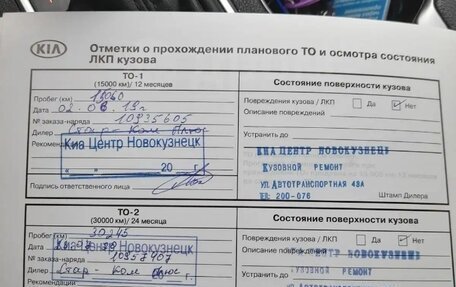 KIA
Отметки о прохождении планового ТО и осмотра состояния
ЛКП кузова
ТО-1
(15000 км)/ 12 месяцев
Пробег (км) 15060
Дата 02.08.19г
№ заказа-наряда 10935605
Дилер Стар-Ком Плюс
Рекомендации
Киа Центр Новокузнецк
« » 20 г.
Подпись ответственного лица
Состояние поверхности кузова
Повреждения кузова / ЛКП Да Нет
Описание повреждений
Устранить до
КИА ЦЕНТР НОВОКУЗНЕЦК
КУЗОВНОЙ РЕМОНТ
УЛ. АВТОТРАНСПОРТНАЯ 49А
ТЕЛ: 200-076
Штамп Дилера
ТО-2
(30000 км)/ 24 месяца
Пробег (км) 30245
Дата
Киа Центр Новокузнецк
№ заказа-наряда 10957407
Дилер Стар-Ком Плюс
20 г.
Рекомендации
Состояние поверхности кузова
Повреждения кузова / ЛКП Да Нет
Описание повреждений
ЦЕНТР НОВОКУЗНЕЦК
Устранить до
КУЗОВНОЙ РЕМОНТ